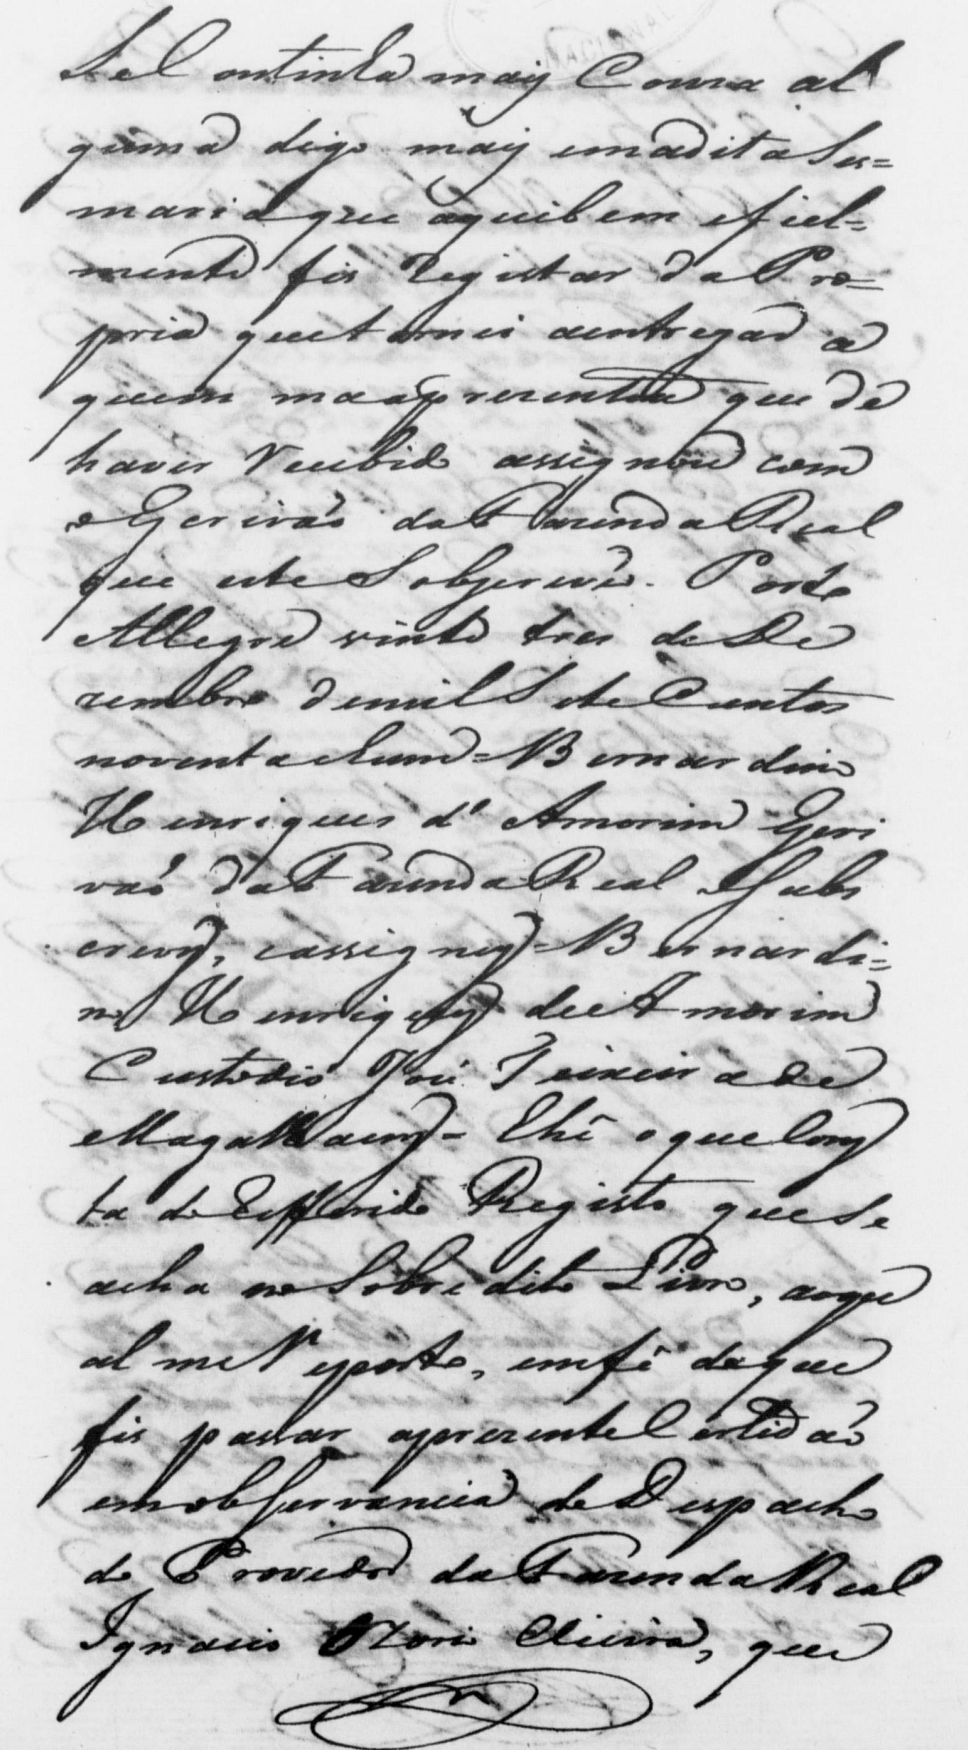 Se Continha mais Couza al
guma digo mais em a dita Ses=
maria que aqui bem e fiel=
mente fis Registar da Pro=
pria que tornei a entregar a
quem ma aprezentou que de
haver Recebido assignou com
o Escrivaõ da Fazenda Real
que este Sobescreveo. Porto
Allegre vinte tres de De
zembro de mil Sete Centos
noventa e hum = Bernardino
Henriques d'Amorim Escri
vaõ da Fazenda Real o Subs
crevy, e assigney = Bernardi=
no Henriques de Amorim
Custodio Joze Teixeira de
Magalhaens = E he o que Cons
ta do Refferido Registo que se
acha no Sobredito Livro, ao qu
al me Reporto, em fé do que
fis passar a prezente Certidaõ
em observancia do Despacho
do Provedor da Fazenda Real
Ignacio Ozorio Vieira, que